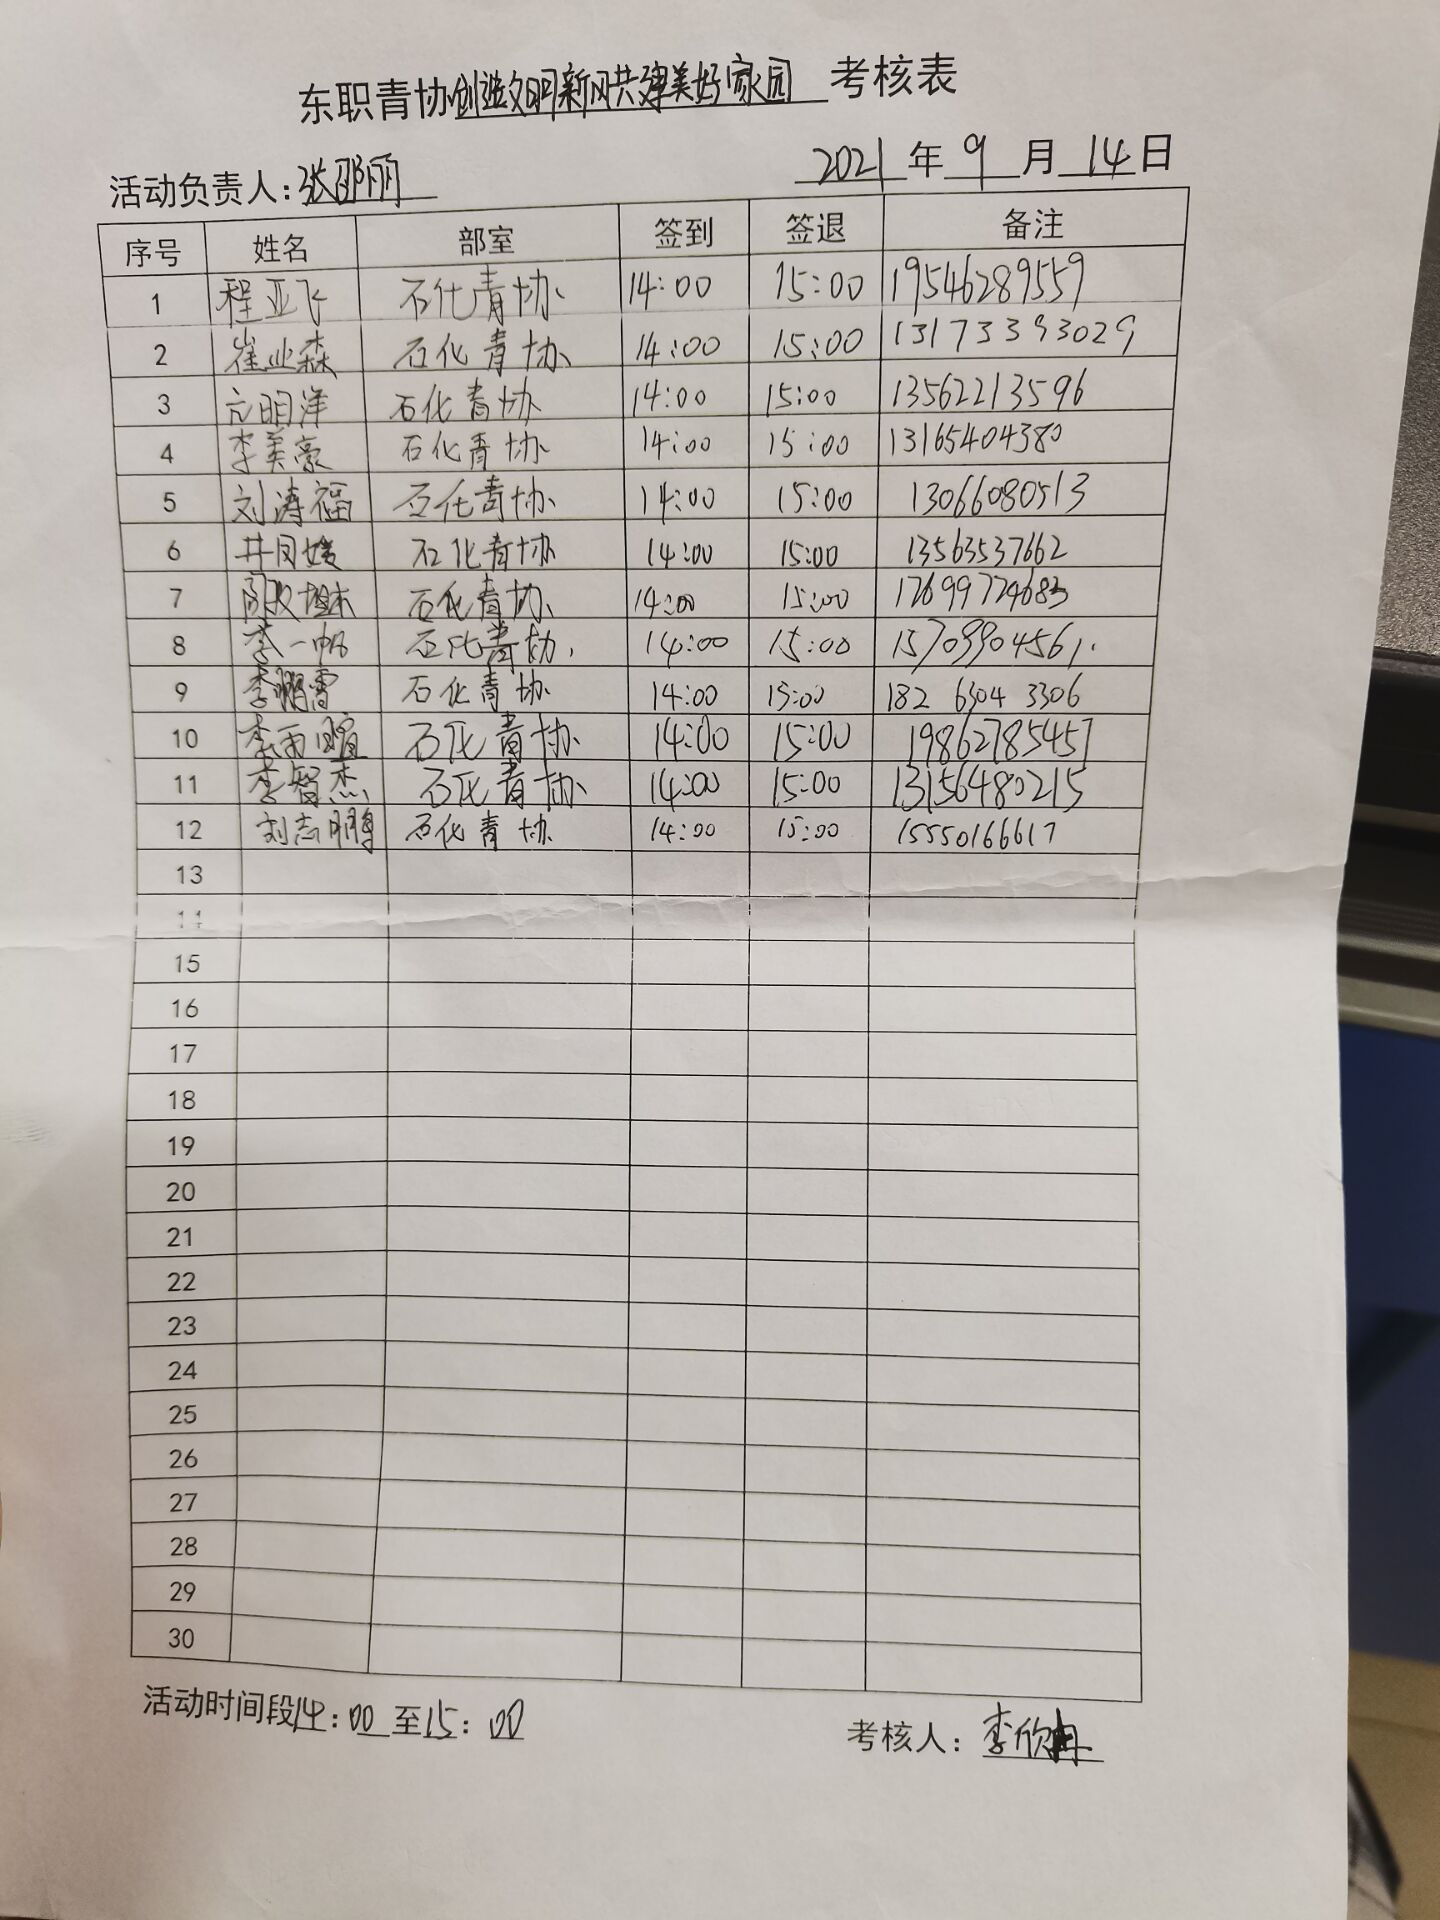 东职青协创造文明新风共建美好家园 考核表
活动负责人:张邵丽 2021年9月14日
序号 姓名 部室 签到 签退 备注
1 程亚飞 石化青协 14:00 15:00 19546289559
2 崔业森 石化青协 14:00 15:00 13173393029
3 明洋 石化青协 14:00 15:00 13562213596
4 李美豪 石化青协 14:00 15:00 13165404380
5 刘涛福 石化青协 14:00 15:00 13066080513
6 井同媛 石化青协 14:00 15:00 13563537662
7 石化青协 14:00 15:00 17699724683
8 李一帆 石化青协. 14:00 15:00 15709904561.
9 李鹏雪 石化青协 14:00 15:00 182 6304 3306
10 李雨暄 石化青协 14:00 15:00 19862785457
11 李智杰 石化青协 14:00 15:00 13156480215
12 刘志鹏 石化青协 14:00 15:00 15550166617
13
14
15
16
17
18
19
20
21
22
23
24
25
26
27
28
29
30
活动时间段14:00至15:00 考核人:李欣冉